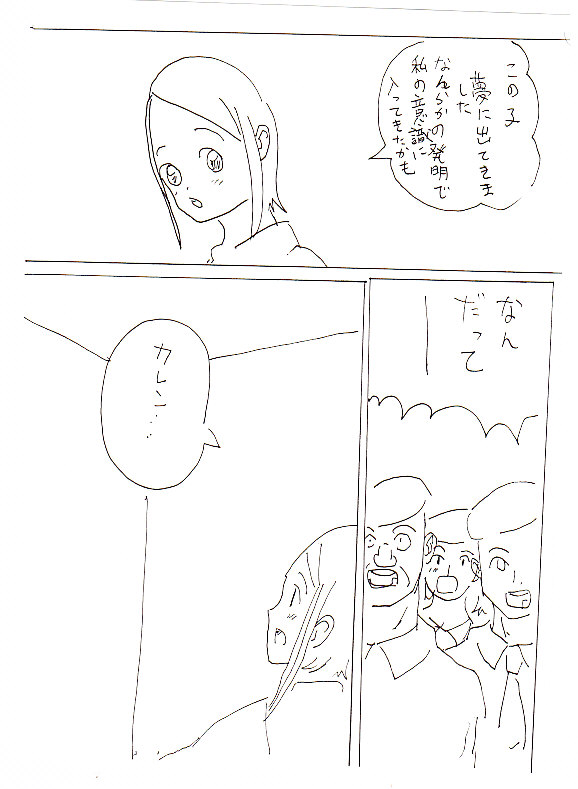 この子
夢に出てきま
した
なんらかの発明で
私の意識に
入ってきたかも
なん
だって
ー
カレン・・・